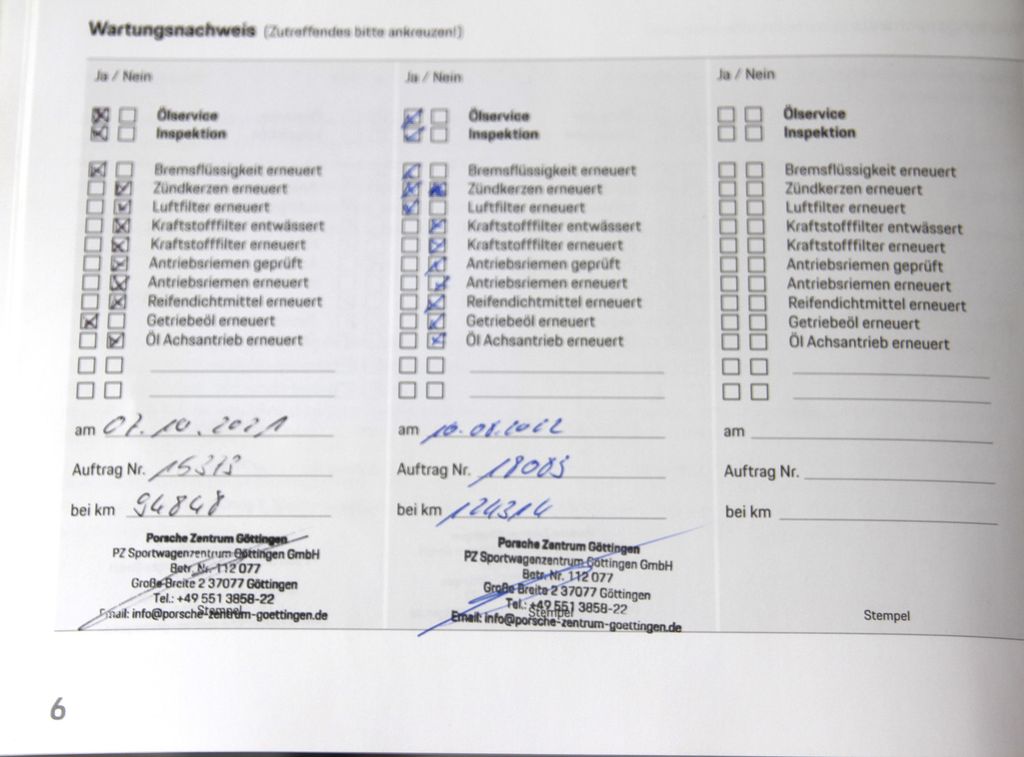 Wartungsnachweis (Zutreffendes bitte ankreuzen!)
Ja / Nein
Ölservice
Inspektion
Bremsflüssigkeit erneuert
Zündkerzen erneuert
Luftfilter erneuert
Kraftstofffilter entwässert
Kraftstofffilter erneuert
Antriebsriemen geprüft
Antriebsriemen erneuert
Reifendichtmittel erneuert
Getriebeöl erneuert
Öl Achsantrieb erneuert
am 07.10.2021
Auftrag Nr. 15373
bei km 94848
Porsche Zentrum Göttingen
PZ Sportwagenzentrum Göttingen GmbH
Betr. Nr. 112 077
Große Breite 2 37077 Göttingen
Tel.: +49 551 3858-22
Stempel
Email: info@porsche-zentrum-goettingen.de
Ja / Nein
Ölservice
Inspektion
Bremsflüssigkeit erneuert
Zündkerzen erneuert
Luftfilter erneuert
Kraftstofffilter entwässert
Kraftstofffilter erneuert
Antriebsriemen geprüft
Antriebsriemen erneuert
Reifendichtmittel erneuert
Getriebeöl erneuert
Öl Achsantrieb erneuert
am 10.08.2022
Auftrag Nr. 18003
bei km 124314
Porsche Zentrum Göttingen
PZ Sportwagenzentrum Göttingen GmbH
Betr. Nr. 112 077
Große Breite 2 37077 Göttingen
Tel.: +49 551 3858-22
Stempel
Email: info@porsche-zentrum-goettingen.de
Ja / Nein
Ölservice
Inspektion
Bremsflüssigkeit erneuert
Zündkerzen erneuert
Luftfilter erneuert
Kraftstofffilter entwässert
Kraftstofffilter erneuert
Antriebsriemen geprüft
Antriebsriemen erneuert
Reifendichtmittel erneuert
Getriebeöl erneuert
Öl Achsantrieb erneuert
am
Auftrag Nr.
bei km
Stempel
6